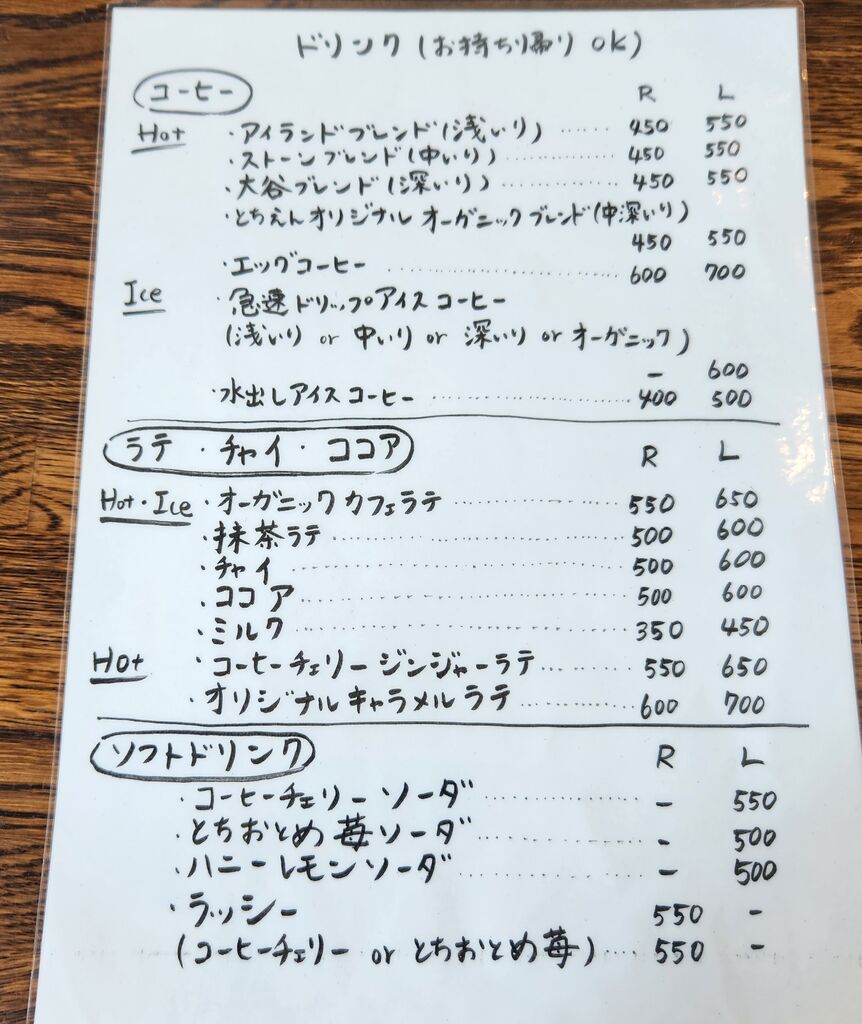 ドリンク (お持ち帰り OK)
コーヒー R L
Hot ・アイランドブレンド(浅いり) …… 450 550
・ストーンブレンド(中いり) …… 450 550
・大谷ブレンド(深いり) …… 450 550
・とちえんオリジナル オーガニックブレンド(中深いり)
450 550
・エッグコーヒー …… 600 700
Ice ・急速ドリップアイスコーヒー
(浅いり or 中いり or 深いり or オーガニック)
- 600
・水出しアイスコーヒー …… 400 500
ラテ・チャイ・ココア R L
Hot・Ice ・オーガニックカフェラテ …… 550 650
・抹茶ラテ …… 500 600
・チャイ …… 500 600
・ココア …… 500 600
・ミルク …… 350 450
Hot ・コーヒーチェリージンジャーラテ …… 550 650
・オリジナルキャラメルラテ …… 600 700
ソフトドリンク R L
・コーヒーチェリーソーダ …… - 550
・とちおとめ苺ソーダ …… - 500
・ハニーレモンソーダ …… - 500
・ラッシー 550 -
(コーヒーチェリー or とちおとめ苺) …… 550 -